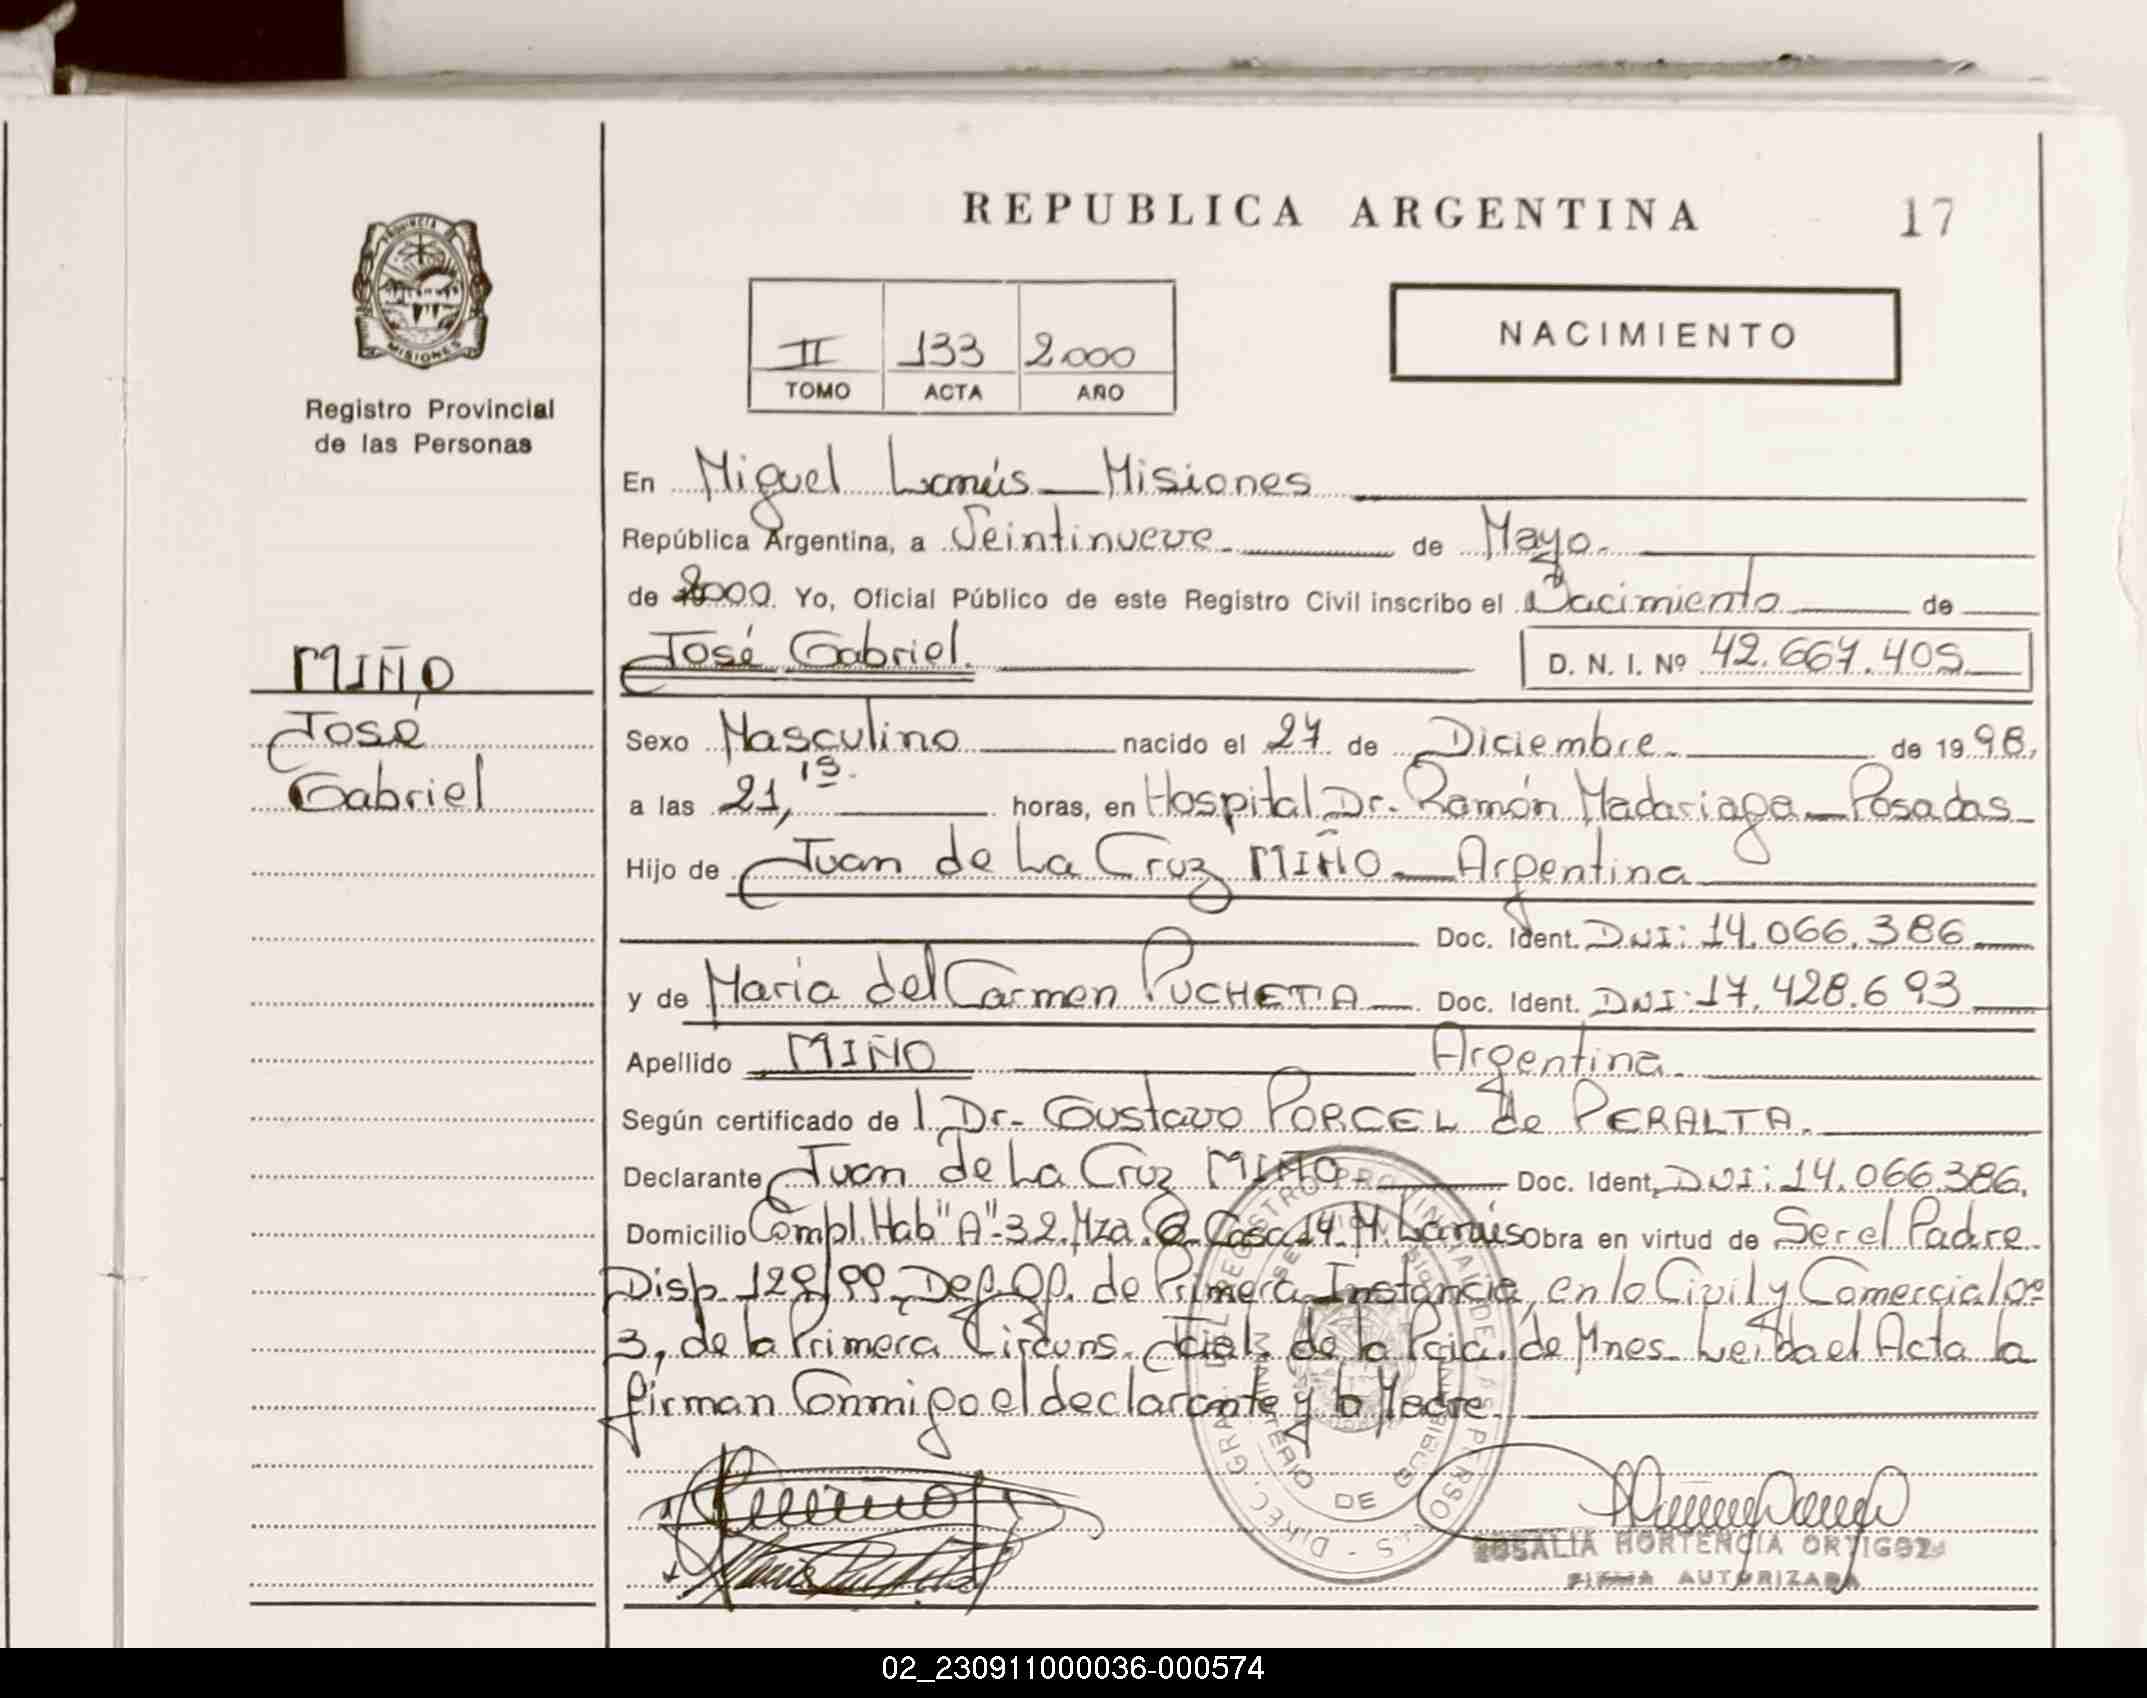 REPUBLICA ARGENTINA 17
PROVINCIA DE
MISIONES
Registro Provincial
de las Personas
II 133 2.000
TOMO ACTA AÑO
NACIMIENTO
En Miguel Lanús - Misiones
República Argentina, a Veintinueve de Mayo.
de 2000. Yo, Oficial Público de este Registro Civil inscribo el Nacimiento de
José Gabriel. D. N. I. Nº 42.667.405
MIÑO
José
Gabriel
Sexo Masculino nacido el 27 de Diciembre de 1998,
a las 21,15. horas, en Hospital Dr. Ramón Madariaga - Posadas
Hijo de Juan de La Cruz MIÑO - Argentina
Doc. Ident. DNI: 14.066.386
y de María del Carmen PUCHETA Doc. Ident. DNI: 17.428.693
Apellido MIÑO Argentina.
Según certificado de l Dr. Gustavo PORCEL de PERALTA.
Declarante Juan de La Cruz MIÑO Doc. Ident. DNI: 14.066.386.
Domicilio Compl. Hab "A"-32. Mza. Casa 14. M. Lanús obra en virtud de Ser el Padre
Disp. 128/99, Def. Of. de Primera Instancia, en lo Civil y Comercial
3, de la Primera Circuns. Jcial. de la Pcia. de Mnes. Leída el Acta la
firman Conmigo el declarante y la Madre.
DIREC. GRAL. DEL REGISTRO PROVINCIAL DE LAS PERSONAS
MINISTERIO DE GOBIERNO
ROSALIA HORTENCIA ORTIGOZA
FIRMA AUTORIZADA
02_230911000036-000574